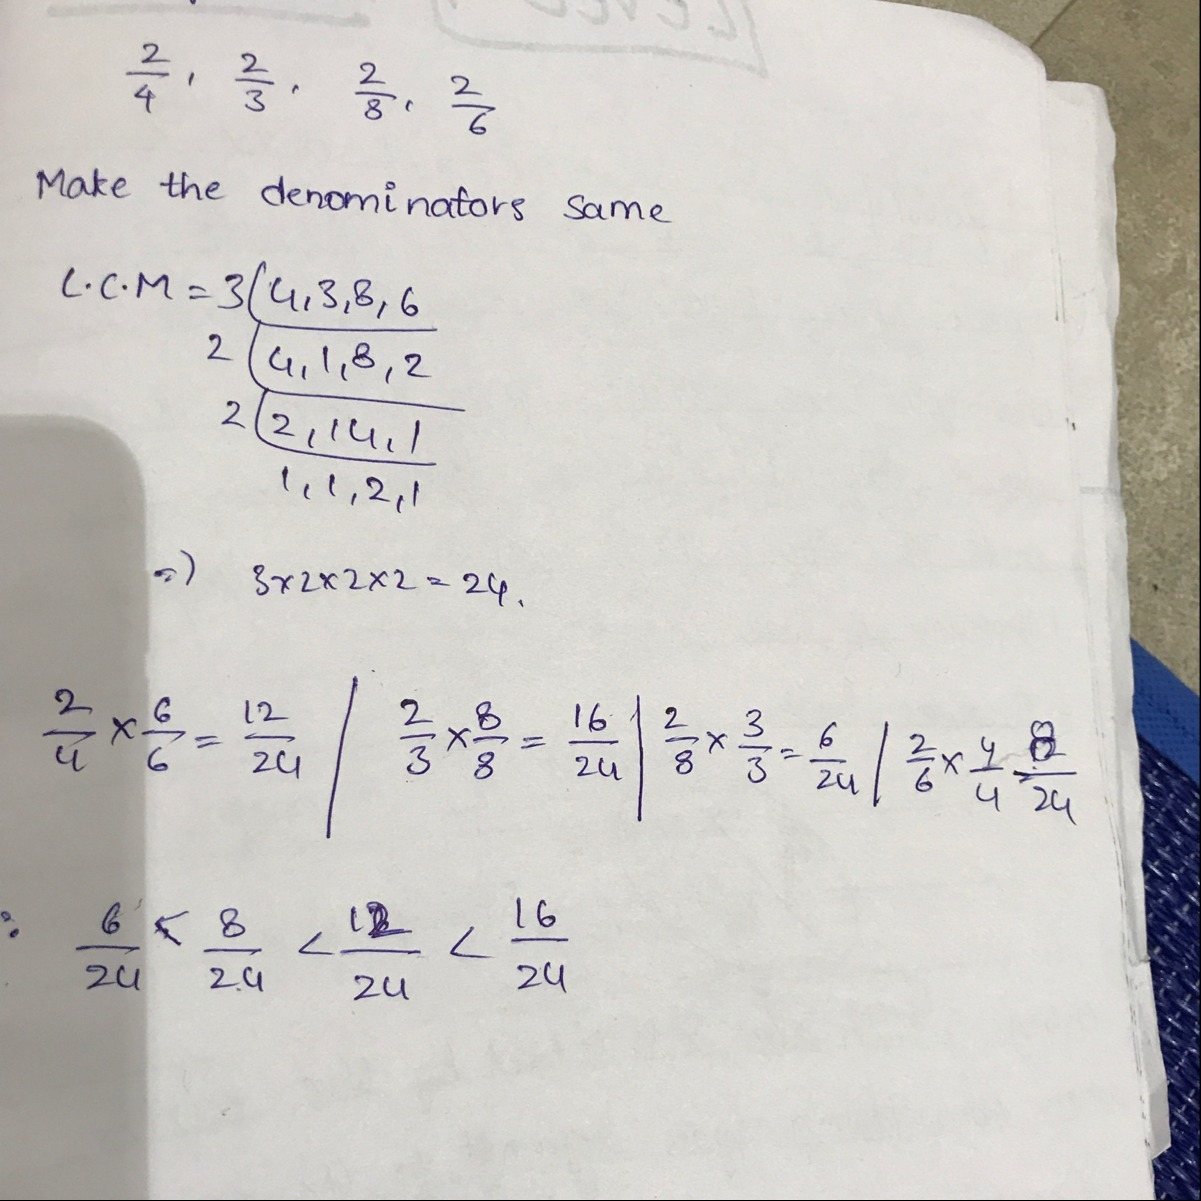 2/4, 2/3, 2/8, 2/6
Make the denominators same
L.C.M = 3(4,3,8,6
2(4,1,8,2
2(2,1 4,1
1,1,2,1
=) 3x2x2x2 = 24.
2/4 x 6/6 = 12/24 | 2/3 x 8/8 = 16/24 | 2/8 x 3/3 = 6/24 | 2/6 x 4/4 = 8/24
: 6/24 < 8/24 < 12/24 < 16/24